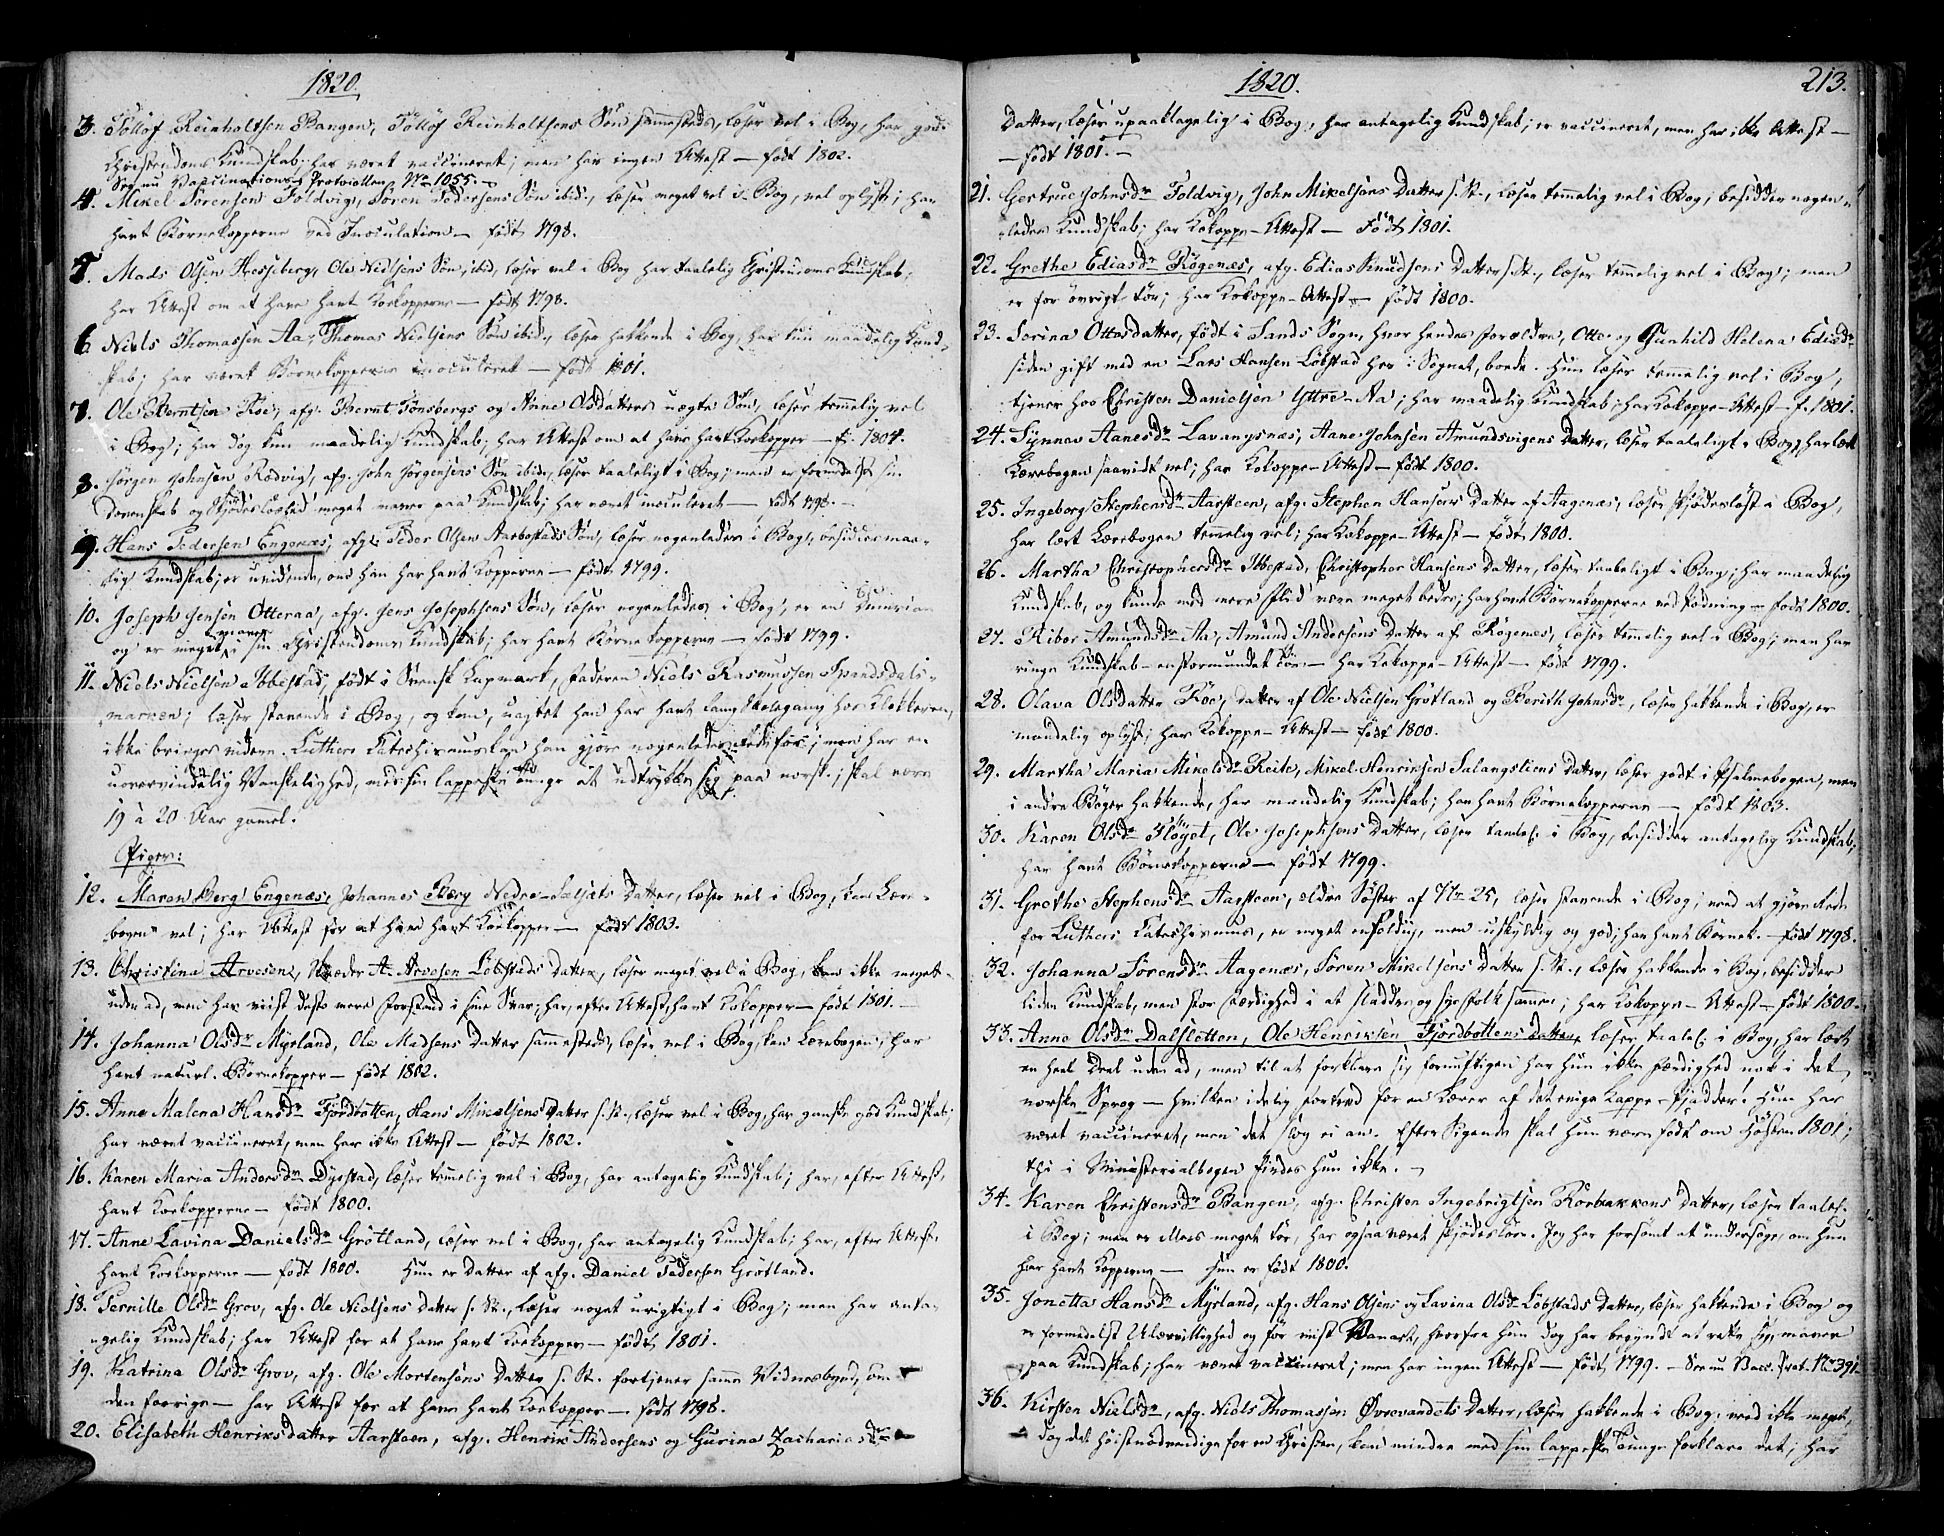 1820.
3. Tollof Reinholtsen Bangen, Tollof Reinholtsens Søn sammesteds, læser vel i Bog, har god
Christendoms Kundskab; har været vaccineret; men har ingen Attest — født 1802.
See nu Vaccinations Protocollen No 1055.
4. Mikel Sørensen Foldvig, Søren Pedersens Søn ibid., læser meget vel i Bog, vel oplyst; har
havt Børnekopperne ved Inoculation — født 1798.
5. Mads Olsen Hesseberg, Ole Nielsens Søn ibid, læser vel i Bog har taalelig Christendoms Kundskab;
har Attest om at have havt Koekopperne — født 1798.
6. Niels Thomassen Aa, Thomas Nielsens Søn ibid., læser hakkende i Bog, har kun maadelig Kund-
skab; har været Børnekopperne inoculeret — født 1801.
7. Ole Berntsen Roe, afg. Bernt Tønsbergs og Anne Olsdatters uægte Søn, læser temmelig vel
i Bog; har dog kun maadelig Kundskab; har Attest om at have havt Koekopper — f. 1804.
8. Jørgen Johnsen Rødvig, afg. John Jørgensens Søn ibid., læser taaleligt i Bog; men er formedelst sin
Dovenskab og Skjødesløshed meget maver paa Kundskab; har været inoculeret — født 1798.
9. Hans Pedersen Engenæs, afg. Peder Olsen Aarbostads Søn, læser nogenledes i Bog, besidder maa-
lig Kundskab; er uvidende, om han har havt Kopperne — født 1799.
10. Joseph Jensen Otteraa, afg. Jens Josephsens Søn, læser nogenledes i Bog, er en
og er meget maver i sin Christendoms Kundskab; har havt Børnekopperne — født 1799.
11. Niels Nielsen Ibbestad, født i Svensk Lapmark, Faderen Niels Rasmussen Spandsdals-
marken; læser stavende i Bog, og kan, uagtet han har havt lang Skolegang hos Klokkeren,
ikke bringes videre. Luthers Catechismus kan han gjøre nogenledes Rede for; men har en
uovervindelig Vanskelighed, med sin lappeske Tunge at udtrykke sig paa norsk; skal være
19 à 20 Aar gammel.
Piger:
12. Maren Berg Engenæs, Johannes Berg Nedre-Salsæts Datter, læser vel i Bog, kan Lære-
bogen vel; har Attest for at have havt Koekopper — født 1803.
13. Christina Arvesen, A. Arvesen Løbstads Datter, læser meget vel i Bog, kan ikke meget
uden ad, men har viist desto mere Forstand i sine Svar; har, efter Attest, havt Kokopper — født 1801.
14. Johanna Olsdr Myrland, Ole Madsens Datter sammesteds, læser vel i Bog, kan Lærebogen, har
havt naturl. Børnekopper — født 1802.
15. Anne Malena Hansdr Fjordbotten, Hans Mikelsens Datter s. St., læser vel i Bog, har ganske god Kundskab,
har været vaccineret, men har ikke Attest — født 1802.
16. Karen Maria Andersdr Dyrstad, læser temmelig vel i Bog, har antagelig Kundskab; har, efter Attest,
havt Koekopperne — født 1800.
17. Anne Lavina Danielsdr Grøtland, læser vel i Bog, har antagelig Kundskab; har, efter Attest,
havt Koekopperne — født 1800. Hun er Datter af afg. Daniel Pedersen Grøtland.
18. Pernille Olsdr Grov, afg. Ole Nielsens Datter s. St., læser noget urigtigt i Bog; men har anta-
gelig Kundskab; har Attest for at have havt Koekopper — født 1801.
19. Katrina Olsdr Grov, afg. Ole Mortensøns Datter s. St. fortjener samme Vidnesbyrd, som
den forrige — har Attest for at have havt Koekopper — født 1798.
20. Elisabeth Henriksdatter Aarsteen, afg. Henrik Andersens og Gurina Zachariasdr
1820. 213.
Datter, læser upaaklagelig i Bog, har antagelig Kundskab; er vaccineret, men har ikke Attest —
— født 1801. —
21. Gjertrue Johnsdr Foldvig, John Mikelsøns Datter s. St., læser temmelig vel i Bog, besidder nogen-
ledes Kundskab; har Kokoppe-Attest — født 1801.
22. Grethe Ediasdr Røgenæs, afg. Edias Knudsens Datter s. St., læser temmelig vel i Bog; men
er for øvrigt tør; har Kokoppe-Attest — født 1800.
23. Sorina Ottosdatter, født i Sands Sogn, hvor hendes Forældre, Otto og Gunhild Helena Ediasdr
siden gift med en Lars Hansen Løbstad her i Sognet, boede. Hun læser temmelig vel i Bog,
tjener hos Christen Danielsen Yttre-Aa; har maadelig Kundskab; har Kokoppe-Attest — f. 1801.
24. Synnav Aanesdr Lavangsnæs, Aane Johnsen Amundsvigens Datter, læser taaleligt i Bog, har lært
Lærebogen saavidt vel; har Kokoppe-Attest — født 1800.
25. Ingeborg Stephensdr Aarsteen, afg. Stephen Hansens Datter af Aagenæs, læser skjødesløst i Bog,
har lært Lærebogen temmelig vel; har Kokoppe-Attest — født 1800.
26. Martha Christophersdr Ibbestad, Christopher Hansens Datter, læser taaleligt i Bog; har maadelig
Kundskab, og kunde med mere Flid være meget bedre; har havt Børnekopperne ved Podning — født 1800.
27. Ribor Amundsdr Aa, Amund Andersens Datter af Røgenæs, læser temmelig vel i Bog; men har
ringe Kundskab — har Kokoppe-Attest — født 1799.
28. Olava Olsdatter Roe, Datter af Ole Nielsen Grøtland og Berith Johnsdr, læser hakkende i Bog, er
maadelig oplyst; har Kokoppe-Attest — født 1800.
29. Martha Maria Mikelsdr Reite, Mikel Henriksen Salangsliens Datter, læser godt i Psalmebogen, men
i andre Bøger hakkende, har maadelig Kundskab; har havt Børnekopperne — født 1803.
30. Karen Olsdr Fløyet, Ole Josephsens Datter, læser taalel. i Bog, besidder antagelig Kundskab,
har havt Børnekopperne — født 1799.
31. Grethe Stephensdr Aarsteen, ældre Søster af No 25, læser stavende i Bog; ved at gjøre Rede
for Luthers Catechismus, er meget enfoldig, men uskyldig og god; har havt Børnek. — født 1798.
32. Johanna Sørensdr Aagenæs, Søren Mikelsens Datter s. St., læser hakkende i Bog, besidder
liden Kundskab, men stor Færdighed i at sladder og sye Folk sammen; har Kokoppe-Attest — født 1800.
33. Anne Olsdr Dalsletten, Ole Henriksen Fjordbottens Datter, læser taalel. i Bog, har lært
en heel Deel uden ad, men til at forklare sig fornuftigen har hun ikke Færdighed nok i det
norske Sprog — hvilken idelig Fortred for en Lærer af det evige Lappe-Pjadder! Hun har
været vaccineret, men det slog ei an. Efter Sigende skal hun være født om Høsten 1801;
thi i Ministerialbogen findes hun ikke. —
34. Karen Christensdr Bangen, afg. Christen Ingebrigtsen Rørbakkens Datter, læser taalel.
i Bog; men er ellers meget tør, har ogsaa været skjødesløs. Jeg har forsømt at undersøge, om hun
har havt Kopperne — hun er født 1800.
35. Jonetta Hansdr Myrland, afg. Hans Olsens og Lavina Olsdr Løbstads Datter, læser hakkende i Bog og
er formedelst Ulærvillighed og før viist Vanart, hvorfra hun dog har begyndt at rette sig, maver
paa Kundskab; har været vaccineret; men har ingen Attest — født 1799. — See nu Vacc. Prot. No 391.
36. Kirsten Nielsdr, afg. Niels Thomassen Øvrevandets Datter, læser hakkende i Bog; veed ikke meget,
dog det høistnødvendige for en Christen, kan mindre med sin lappeske Tunge forklare det; har